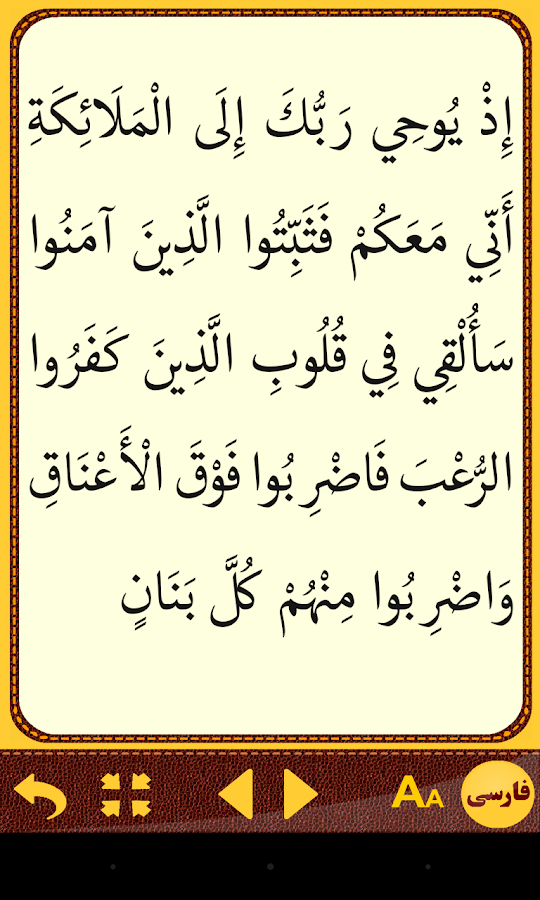 إِذْ يُوحِي رَبُّكَ إِلَى الْمَلَائِكَةِ
أَنِّي مَعَكُمْ فَثَبِّتُوا الَّذِينَ آمَنُوا
سَأُلْقِي فِي قُلُوبِ الَّذِينَ كَفَرُوا
الرُّعْبَ فَاضْرِبُوا فَوْقَ الْأَعْنَاقِ
وَاضْرِبُوا مِنْهُمْ كُلَّ بَنَانٍ
AA
فارسی